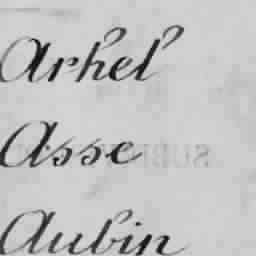 Arhel
Asse
Aubin